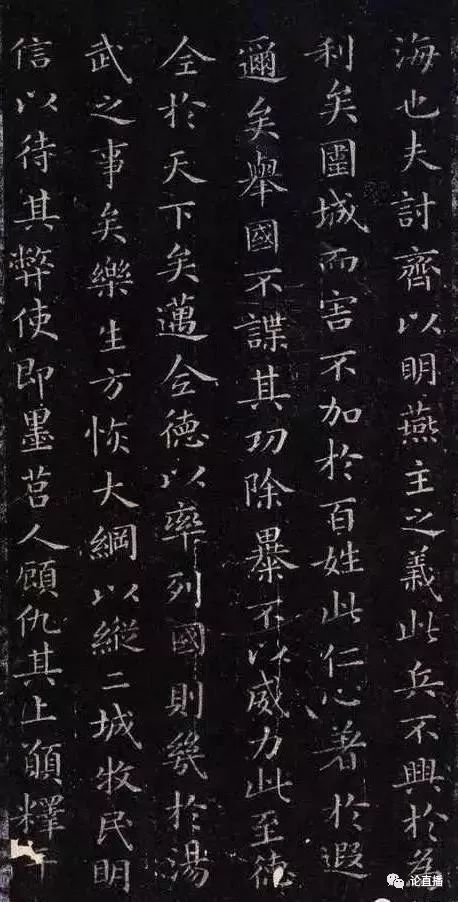 海也夫討齊以明燕主之義此兵不興於為
利矣圍城而害不加於百姓此仁心著於遐
邇矣舉國不謀其功除暴不以威力此至德
全於天下矣邁全德以率列國則幾於湯
武之事矣樂生方恢大綱以縱二城牧民明
信以待其弊使即墨莒人顧仇其上願釋
论直播